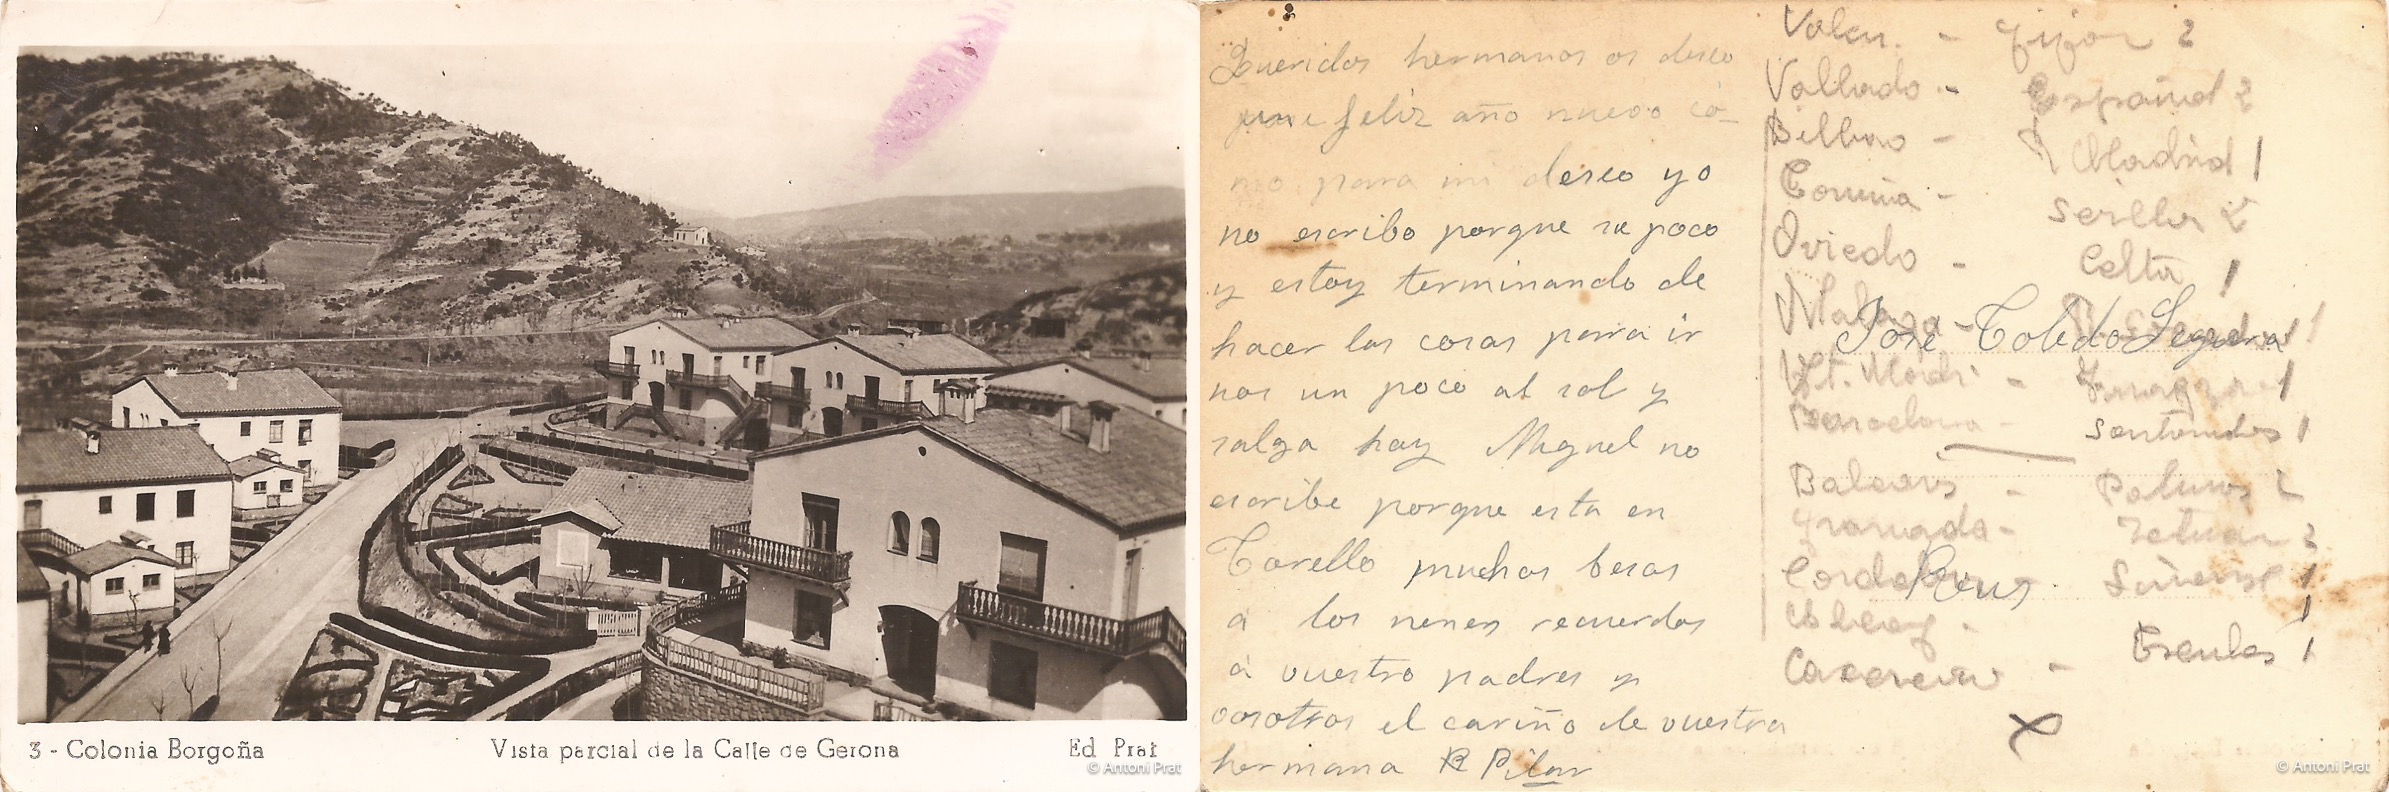 3 - Colonia Borgoña
Vista parcial de la Calle de Gerona
Ed Prat
© Antoni Prat
Queridos hermanos os deseo
une feliz año nuevo co-
mo para mi deseo yo
no escribo porque se poco
y estoy terminando de
hacer las cosas parra ir
nos un poco al sol y
salga hay Miguel no
escribe porque esta en
Torello muchos besos
a los nenes recuerdos
a vuestro padres y
vosotros el cariño de vuestra
hermana Pilar
Valen. - Gijon 2
Vallado - Español 2
Bilbao - Madrid 1
Coruña - Sevilla 2
Oviedo - Celta 1
Malaga -
José Toledo Seguera
At. Madri - 1
Barcelona - Santander 1
Balears - 2
Granada - Tetuan 2
Cordoba 1
Reus
Alcoy - 1
- Herules 1
© Antoni Prat